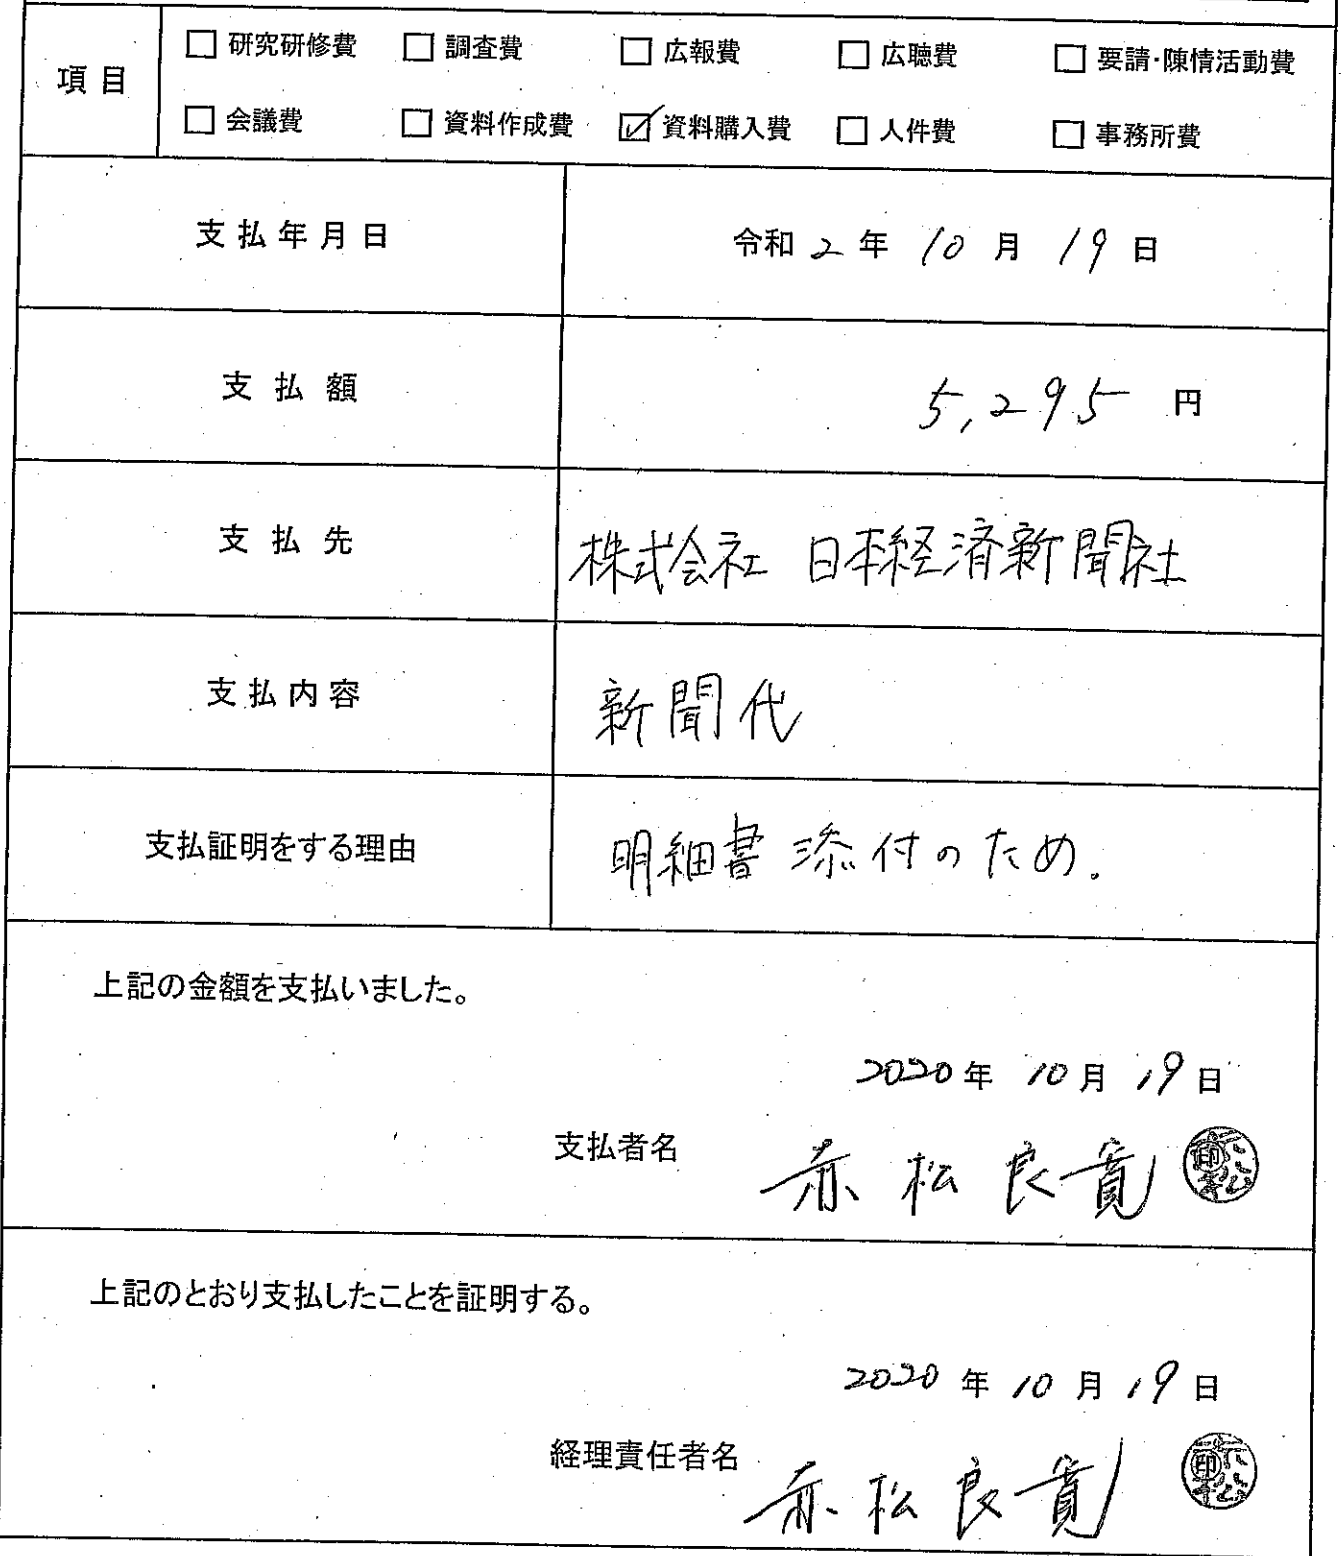 項目
□ 研究研修費 □ 調査費 □ 広報費 □ 広聴費 □ 要請・陳情活動費
□ 会議費 □ 資料作成費 ☑ 資料購入費 □ 人件費 □ 事務所費
支払年月日 令和2年10月19日
支払額 5,295円
支払先 株式会社 日本経済新聞社
支払内容 新聞代
支払証明をする理由 明細書添付のため.
上記の金額を支払いました。
2020年10月19日
支払者名 赤松良寛 印
上記のとおり支払したことを証明する。
2020年10月19日
経理責任者名 赤松良寛 印